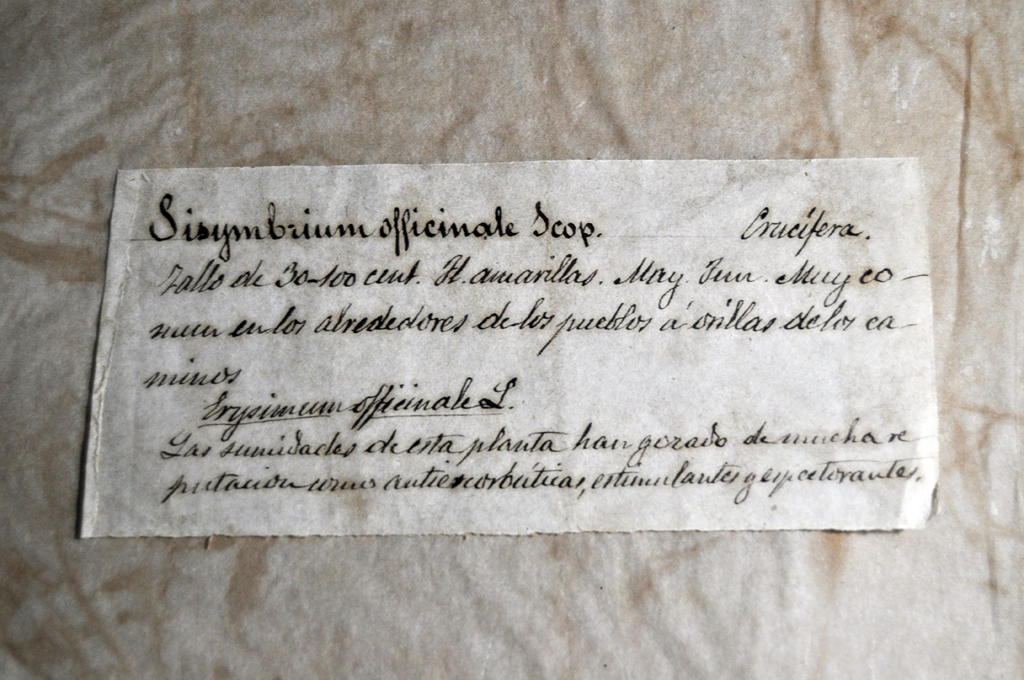 Sisymbrium officinale Scop. Crucífera.
Tallo de 30-100 cent. Fl. amarillas. May. Jun. Muy co-
mun en los alrededores de los pueblos á orillas de los ca-
minos
Erysimum officinale L.
Las sumidades de esta planta han gozado de mucha re
putacion como antiescorbúticas, estimulantes y espectorantes.